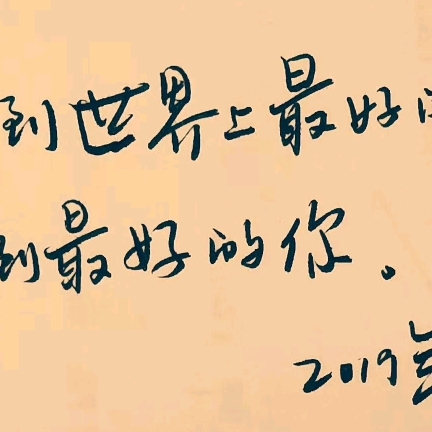 到世界上最好
到最好的你。
2019